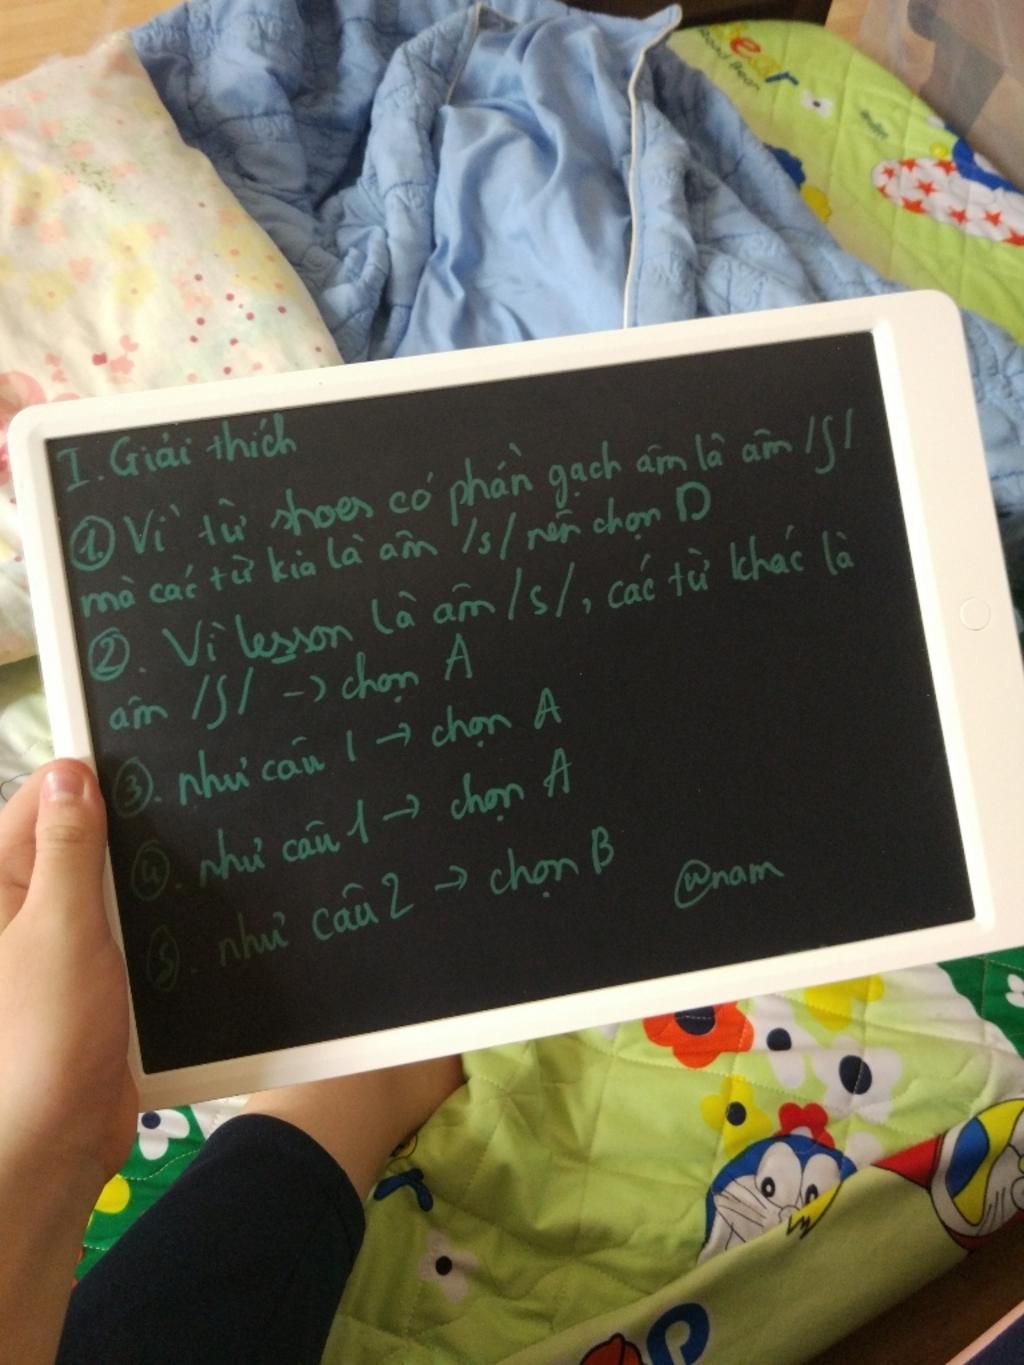 ear
Good Bear
I. Giải thích
①. Vì từ shoes có phần gạch âm là âm /ʃ/
mà các từ kia là âm /s/ nên chọn D
②. Vì lesson là âm /s/, các từ khác là
âm /ʃ/ -> chọn A
③. như câu 1 -> chọn A
④. như câu 1 -> chọn A
⑤. như câu 2 -> chọn B
@nam